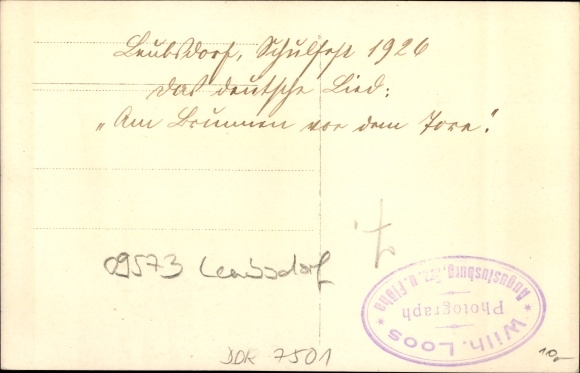 Leubsdorf, Schulfest 1926
Das deutsche Lied:
„Am Brunnen vor dem Tore".
09573 Leubsdorf
DDR 7501
Wilh. Loos
Photograph
Augustusburg, Bz. u. Flöha
10,-